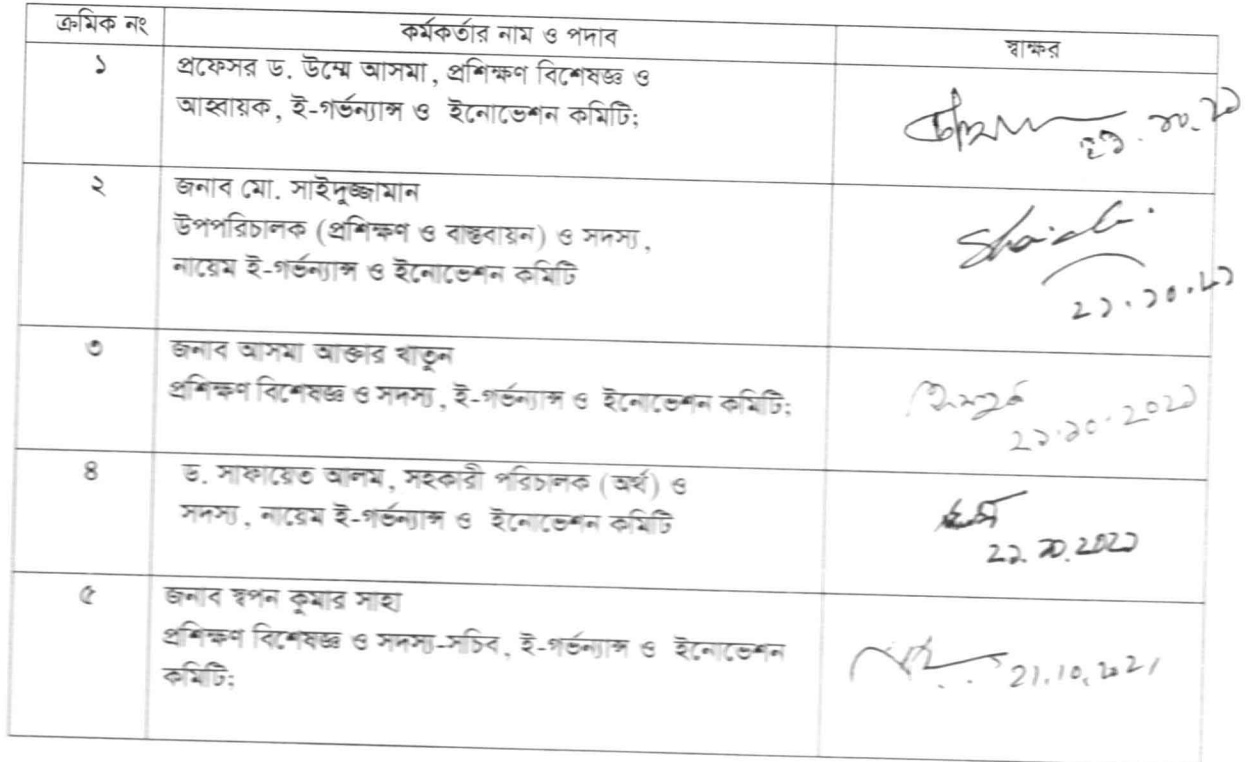 ক্রমিক নং কর্মকর্তার নাম ও পদাব স্বাক্ষর
১ প্রফেসর ড. উম্মে আসমা, প্রশিক্ষণ বিশেষজ্ঞ ও
আহ্বায়ক, ই-গর্ভন্যান্স ও ইনোভেশন কমিটি;
২ জনাব মো. সাইদুজ্জামান
উপপরিচালক (প্রশিক্ষণ ও বাস্তবায়ন) ও সদস্য,
নায়েম ই-গর্ভন্যান্স ও ইনোভেশন কমিটি
২১.১০.২১
৩ জনাব আসমা আক্তার খাতুন
প্রশিক্ষণ বিশেষজ্ঞ ও সদস্য, ই-গর্ভন্যান্স ও ইনোভেশন কমিটি;
২১.১০.২০২১
৪ ড. সাফায়েত আলম, সহকারী পরিচালক (অর্থ) ও
সদস্য, নায়েম ই-গর্ভন্যান্স ও ইনোভেশন কমিটি
২১.১০.২০২১
৫ জনাব স্বপন কুমার সাহা
প্রশিক্ষণ বিশেষজ্ঞ ও সদস্য-সচিব, ই-গর্ভন্যান্স ও ইনোভেশন
কমিটি;
21.10.2021